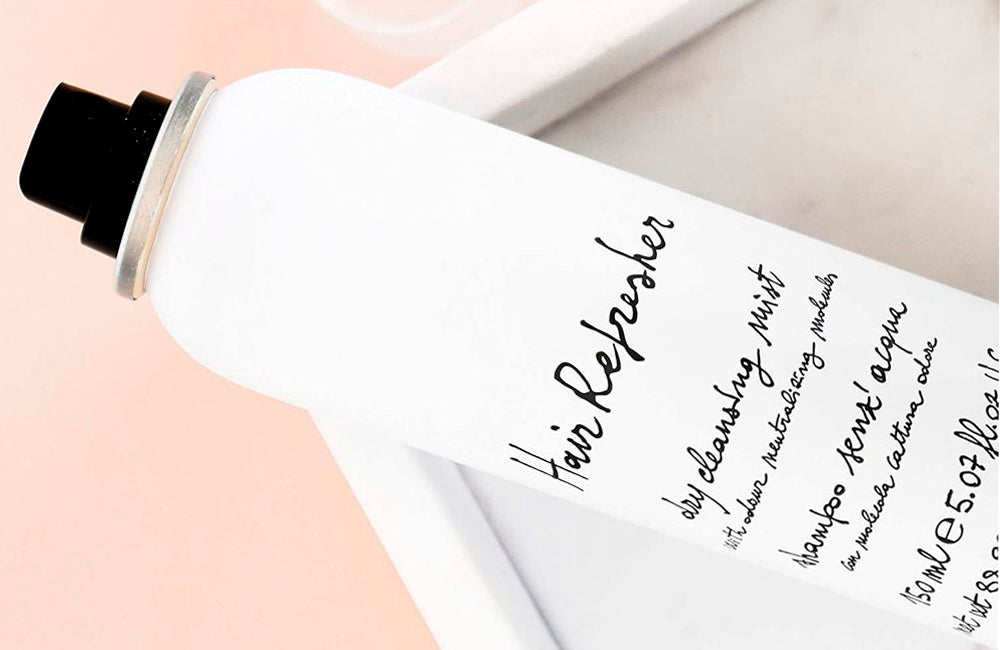 Hair Refresher
dry cleansing mist
with odour neutralising molecules
shampoo senz' acqua
con molecola cattura odore
150 ml e 5.07 fl.oz
net wt